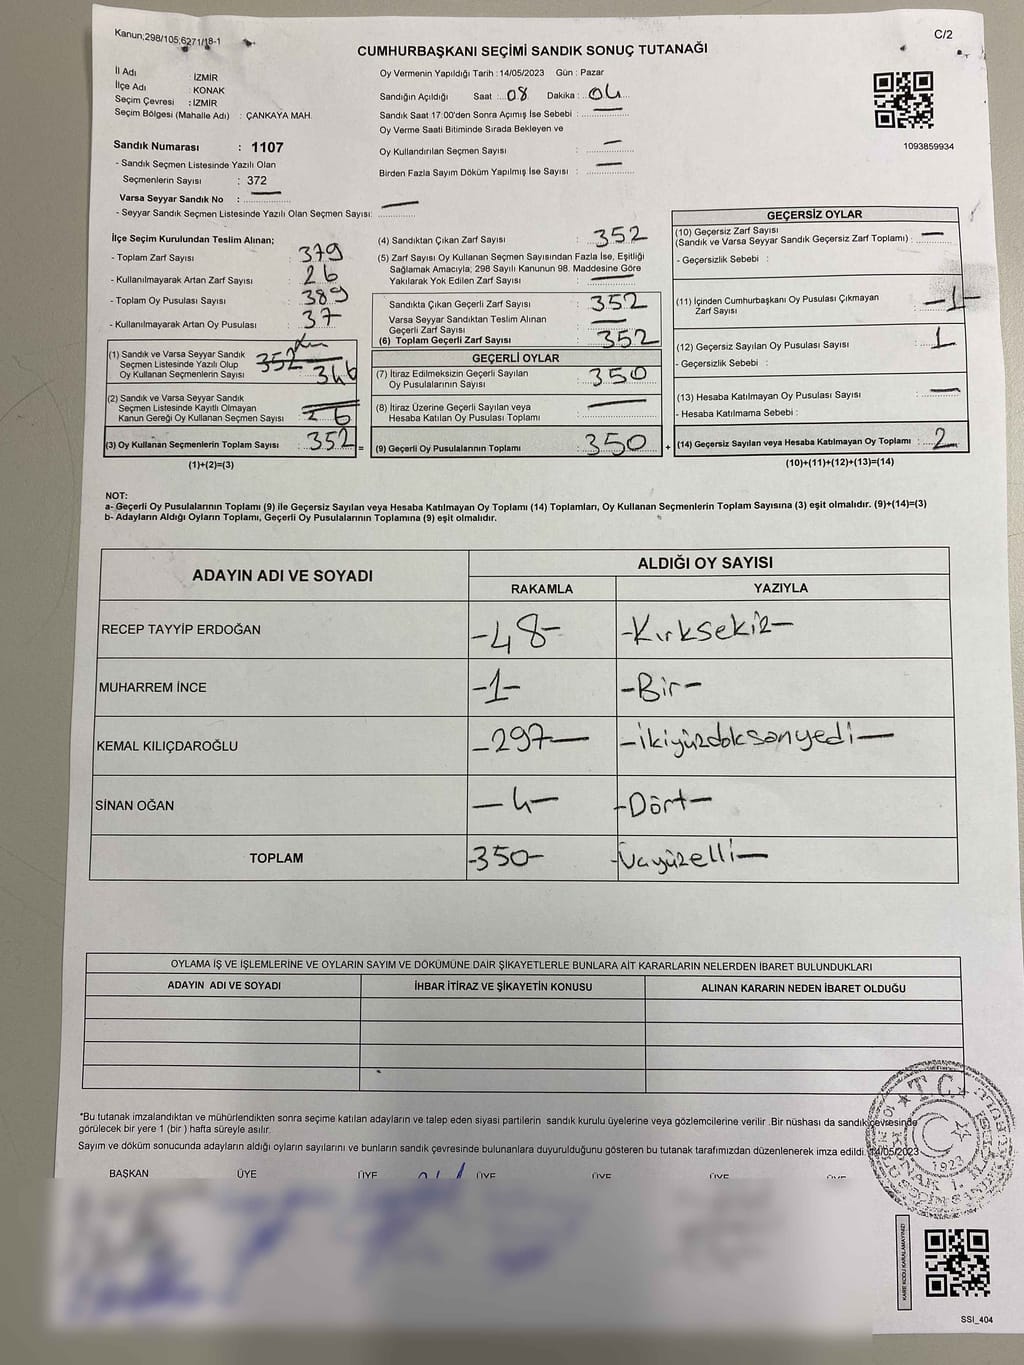 Kanun;298/105;6271/18-1
C/2
CUMHURBAŞKANI SEÇİMİ SANDIK SONUÇ TUTANAĞI
İl Adı : İZMİR
İlçe Adı : KONAK
Seçim Çevresi : İZMİR
Seçim Bölgesi (Mahalle Adı) : ÇANKAYA MAH.
Sandık Numarası : 1107
- Sandık Seçmen Listesinde Yazılı Olan
Seçmenlerin Sayısı : 372
Varsa Seyyar Sandık No :
- Seyyar Sandık Seçmen Listesinde Yazılı Olan Seçmen Sayısı:
Oy Vermenin Yapıldığı Tarih : 14/05/2023 Gün : Pazar
Sandığın Açıldığı Saat : 08 Dakika : 04
Sandık Saat 17:00'den Sonra Açımış İse Sebebi :
Oy Verme Saati Bitiminde Sırada Bekleyen ve
Oy Kullandırılan Seçmen Sayısı :
Birden Fazla Sayım Döküm Yapılmış İse Sayısı :
1093859934
İlçe Seçim Kurulundan Teslim Alınan;
- Toplam Zarf Sayısı : 379
- Kullanılmayarak Artan Zarf Sayısı : 26
- Toplam Oy Pusulası Sayısı : 389
- Kullanılmayarak Artan Oy Pusulası : 37
(1) Sandık ve Varsa Seyyar Sandık
Seçmen Listesinde Yazılı Olup
Oy Kullanan Seçmenlerin Sayısı : 352 346
(2) Sandık ve Varsa Seyyar Sandık
Seçmen Listesinde Kayıtlı Olmayan
Kanun Gereği Oy Kullanan Seçmen Sayısı : 6
(3) Oy Kullanan Seçmenlerin Toplam Sayısı : 352 =
(1)+(2)=(3)
(4) Sandıktan Çıkan Zarf Sayısı : 352
(5) Zarf Sayısı Oy Kullanan Seçmen Sayısından Fazla İse, Eşitliği
Sağlamak Amacıyla; 298 Sayılı Kanunun 98. Maddesine Göre
Yakılarak Yok Edilen Zarf Sayısı :
Sandıkta Çıkan Geçerli Zarf Sayısı : 352
Varsa Seyyar Sandıktan Teslim Alınan
Geçerli Zarf Sayısı :
(6) Toplam Geçerli Zarf Sayısı : 352
GEÇERLİ OYLAR
(7) İtiraz Edilmeksizin Geçerli Sayılan
Oy Pusulalarının Sayısı : 350
(8) İtiraz Üzerine Geçerli Sayılan veya
Hesaba Katılan Oy Pusulası Toplamı :
(9) Geçerli Oy Pusulalarının Toplamı : 350 +
GEÇERSİZ OYLAR
(10) Geçersiz Zarf Sayısı
(Sandık ve Varsa Seyyar Sandık Geçersiz Zarf Toplamı) :
- Geçersizlik Sebebi :
(11) İçinden Cumhurbaşkanı Oy Pusulası Çıkmayan
Zarf Sayısı : -1-
(12) Geçersiz Sayılan Oy Pusulası Sayısı : 1
- Geçersizlik Sebebi :
(13) Hesaba Katılmayan Oy Pusulası Sayısı :
- Hesaba Katılmama Sebebi :
(14) Geçersiz Sayılan veya Hesaba Katılmayan Oy Toplamı : 2
(10)+(11)+(12)+(13)=(14)
NOT:
a- Geçerli Oy Pusulalarının Toplamı (9) ile Geçersiz Sayılan veya Hesaba Katılmayan Oy Toplamı (14) Toplamları, Oy Kullanan Seçmenlerin Toplam Sayısına (3) eşit olmalıdır. (9)+(14)=(3)
b- Adayların Aldığı Oyların Toplamı, Geçerli Oy Pusulalarının Toplamına (9) eşit olmalıdır.
ADAYIN ADI VE SOYADI ALDIĞI OY SAYISI
RAKAMLA YAZIYLA
RECEP TAYYİP ERDOĞAN -48- -Kırksekiz-
MUHARREM İNCE -1- -Bir-
KEMAL KILIÇDAROĞLU -297- -ikiyüzdoksanyedi-
SİNAN OĞAN -4- -Dört-
TOPLAM -350- -Üçyüzelli-
OYLAMA İŞ VE İŞLEMLERİNE VE OYLARIN SAYIM VE DÖKÜMÜNE DAİR ŞİKAYETLERLE BUNLARA AİT KARARLARIN NELERDEN İBARET BULUNDUKLARI
ADAYIN ADI VE SOYADI İHBAR İTİRAZ VE ŞİKAYETİN KONUSU ALINAN KARARIN NEDEN İBARET OLDUĞU
*Bu tutanak imzalandıktan ve mühürlendikten sonra seçime katılan adayların ve talep eden siyasi partilerin sandık kurulu üyelerine veya gözlemcilerine verilir .Bir nüshası da sandık çevresinde
görülecek bir yere 1 (bir ) hafta süreyle asılır.
Sayım ve döküm sonucunda adayların aldığı oyların sayılarını ve bunların sandık çevresinde bulunanlara duyurulduğunu gösteren bu tutanak tarafımızdan düzenlenerek imza edildi. 14/05/2023
BAŞKAN ÜYE ÜYE ÜYE ÜYE ÜYE ÜYE
T.C.
1923
KARE KODU KARALAMAYINIZ!
SSI_404